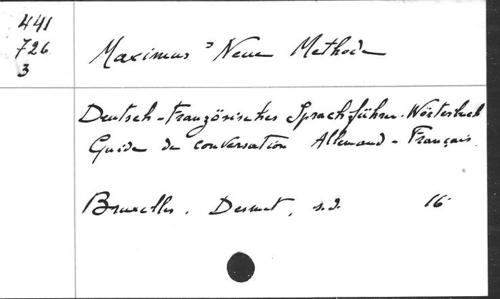 441
726
3
Maximus' Neue Methode
Deutsch-Französisches Sprachführer-Wörterbuch
Guide de conversation Allemand-Français.
Bruxelles. Desmet, s.d. 16°